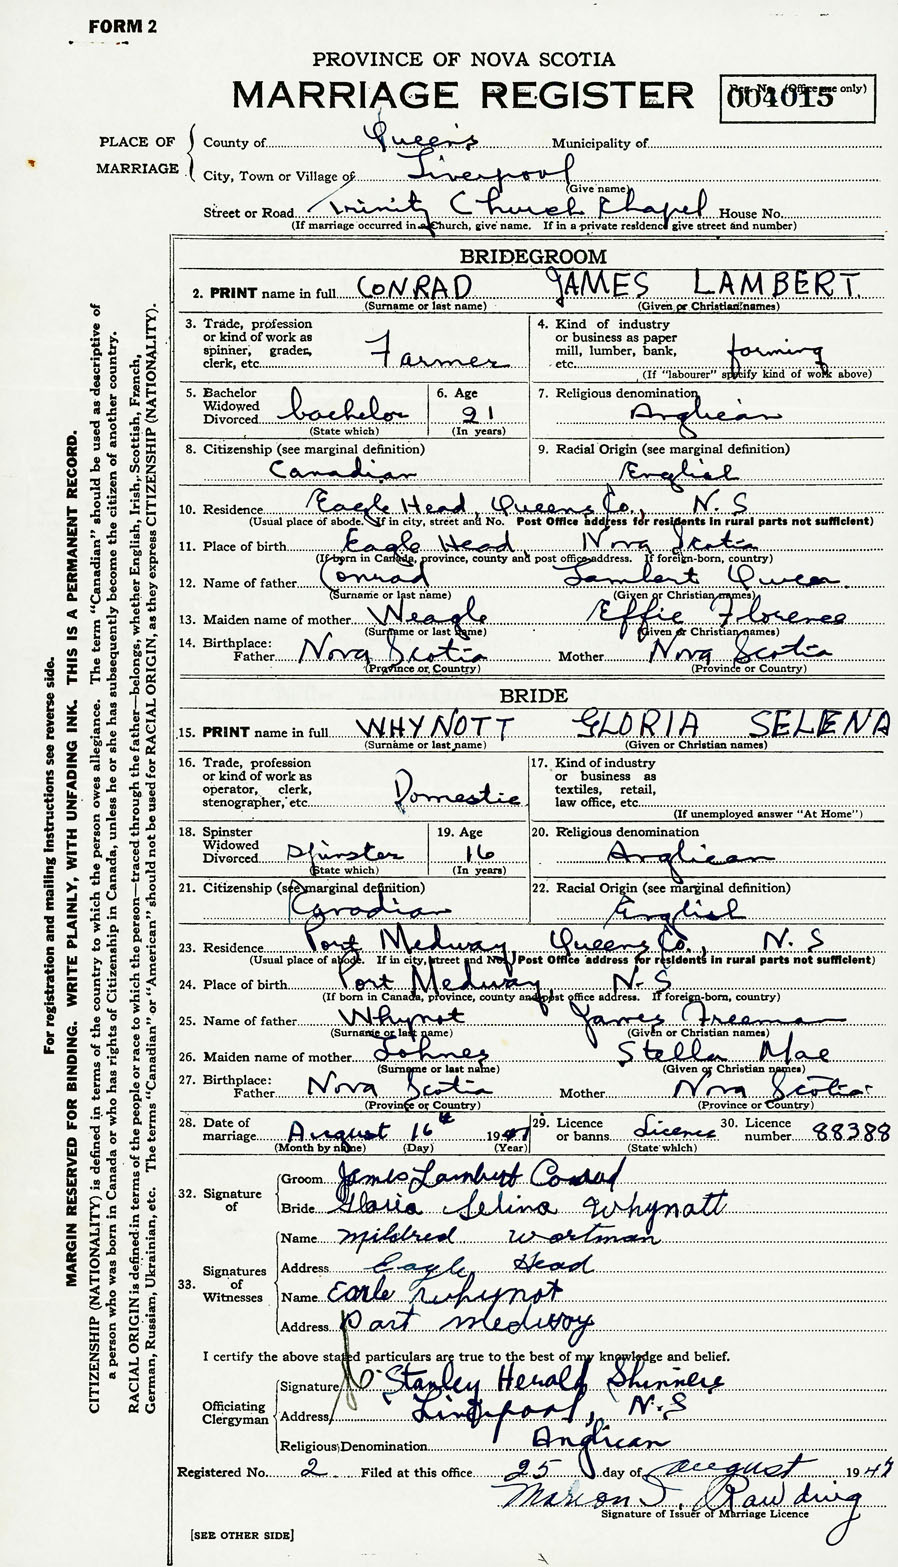 FORM 2
PROVINCE OF NOVA SCOTIA
MARRIAGE REGISTER
Reg. No. (Office use only)
004015
PLACE OF MARRIAGE
County of Queen's Municipality of
City, Town or Village of Liverpool
(Give name)
Street or Road Trinity Church Chapel House No.
(If marriage occurred in a Church, give name. If in a private residence give street and number)
BRIDEGROOM
2. PRINT name in full CONRAD JAMES LAMBERT.
(Surname or last name) (Given or Christian names)
3. Trade, profession or kind of work as spinner, grader, clerk, etc. Farmer
4. Kind of industry or business as paper mill, lumber, bank, etc. farming
(If "labourer" specify kind of work above)
5. Bachelor Widowed Divorced bachelor
(State which)
6. Age 21
(In years)
7. Religious denomination Anglican
8. Citizenship (see marginal definition)
Canadian
9. Racial Origin (see marginal definition)
English
10. Residence Eagle Head, Queens Co., N. S
(Usual place of abode. If in city, street and No. Post Office address for residents in rural parts not sufficient)
11. Place of birth Eagle Head Nova Scotia
(If born in Canada, province, county and post office address. If foreign-born, country)
12. Name of father Conrad Lambert Owen
(Surname or last name) (Given or Christian names)
13. Maiden name of mother Weagle Effie Florence
(Surname or last name) (Given or Christian names)
14. Birthplace:
Father Nova Scotia Mother Nova Scotia
(Province or Country) (Province or Country)
BRIDE
15. PRINT name in full WHYNOTT GLORIA SELENA
(Surname or last name) (Given or Christian names)
16. Trade, profession or kind of work as operator, clerk, stenographer, etc. Domestic
17. Kind of industry or business as textiles, retail, law office, etc.
(If unemployed answer "At Home")
18. Spinster Widowed Divorced Spinster
(State which)
19. Age 16
(In years)
20. Religious denomination
Anglican
21. Citizenship (see marginal definition)
Canadian
22. Racial Origin (see marginal definition)
English
23. Residence Port Medway Queens Co., N. S
(Usual place of abode. If in city, street and No. Post Office address for residents in rural parts not sufficient)
24. Place of birth Port Medway, N. S
(If born in Canada, province, county and post office address. If foreign-born, country)
25. Name of father Whynot James Freeman
(Surname or last name) (Given or Christian names)
26. Maiden name of mother Lohnes Stella Mae
(Surname or last name) (Given or Christian names)
27. Birthplace:
Father Nova Scotia Mother Nova Scotia
(Province or Country) (Province or Country)
28. Date of marriage August 16th 1947
(Month by name) (Day) (Year)
29. Licence or banns Licence
(State which)
30. Licence number 88388
32. Signature of
Groom James Lambert Conrad
Bride Gloria Selina Whynott
33. Signatures of Witnesses
Name Mildred Wortman
Address Eagle Head
Name Earle Whynot
Address Port Medway
I certify the above stated particulars are true to the best of my knowledge and belief.
Officiating Clergyman
Signature Stanley Herald Shinners
Address Liverpool, N. S
Religious Denomination Anglican
Registered No. 2 Filed at this office 25 day of August 1947
Marion Rawding
Signature of Issuer of Marriage Licence
[SEE OTHER SIDE]
For registration and mailing instructions see reverse side.
MARGIN RESERVED FOR BINDING. WRITE PLAINLY, WITH UNFADING INK. THIS IS A PERMANENT RECORD.
CITIZENSHIP (NATIONALITY) is defined in terms of the country to which the person owes allegiance. The term "Canadian" should be used as descriptive of
a person who was born in Canada or who has rights of Citizenship in Canada, unless he or she has subsequently become the citizen of another country.
RACIAL ORIGIN is defined in terms of the people or race to which the person—traced through the father—belongs, whether English, Irish, Scottish, French,
German, Russian, Ukrainian, etc. The terms "Canadian" or "American" should not be used for RACIAL ORIGIN, as they express CITIZENSHIP (NATIONALITY).